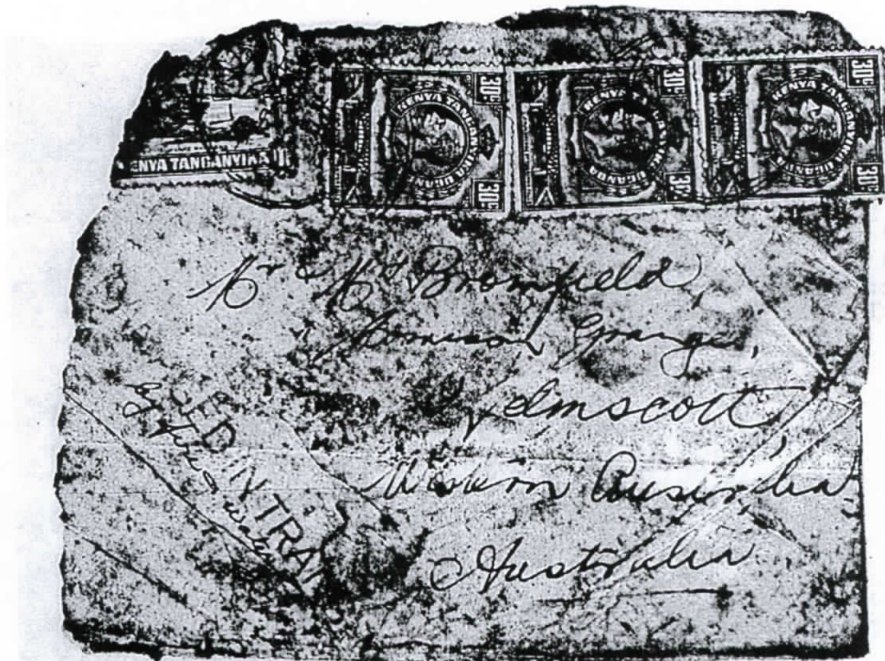 ENYA TANGANYIKA
KENYA TANGANYIKA UGANDA
30c
30c
KENYA TANGANYIKA UGANDA
30c
30c
KENYA TANGANYIKA UGANDA
30c
30c
Mr & Mrs Bromfield,
Grange,
Kelmscott,
Western Australia
Australia
SED IN TRA
By Fire & Water